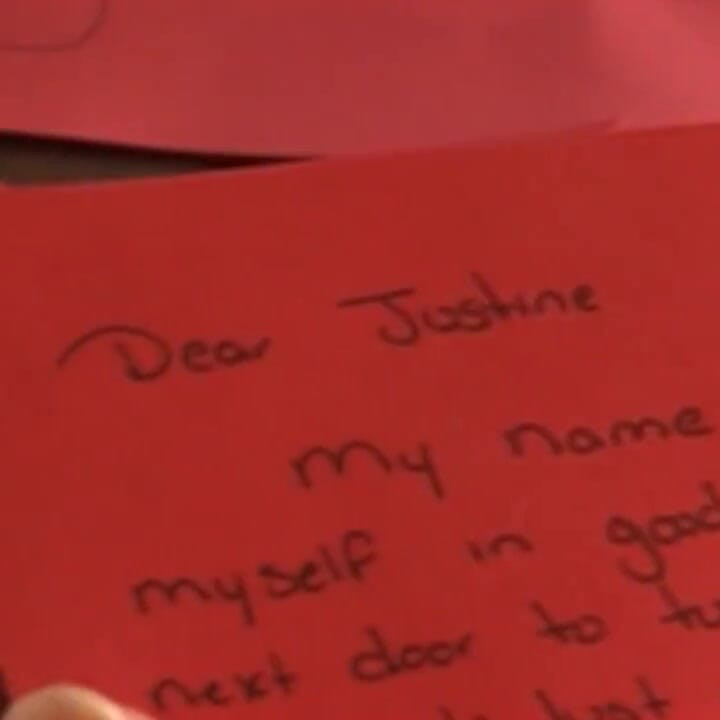 Dear Justine
My name
myself in good
next door to tu
just